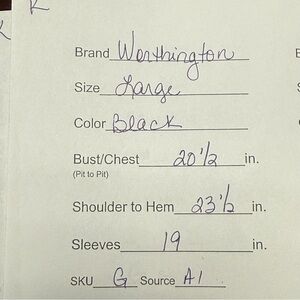 K
Brand Worthington
Size Large
Color Black
Bust/Chest 20 1/2 in.
(Pit to Pit)
Shoulder to Hem 23 1/2 in.
Sleeves 19 in.
SKU G Source A1